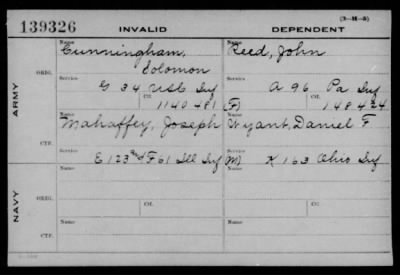 (3-M-5)
139326 INVALID DEPENDENT
Name Name
Cunningham, Reed, John
Solomon
ARMY
ORIG. Service Service
G 34 USC Inf A 96 Pa Inf
1140481 (F) 148424
Name Name
Mahaffey, Joseph Wyant, Daniel F
CTF. Service Service
E 123rd F 61 Ill Inf (M) K 163 Ohio Inf
Name Name
NAVY
ORIG. Service Ctf. Service Ctf.
Name Name
CTF. Service Service